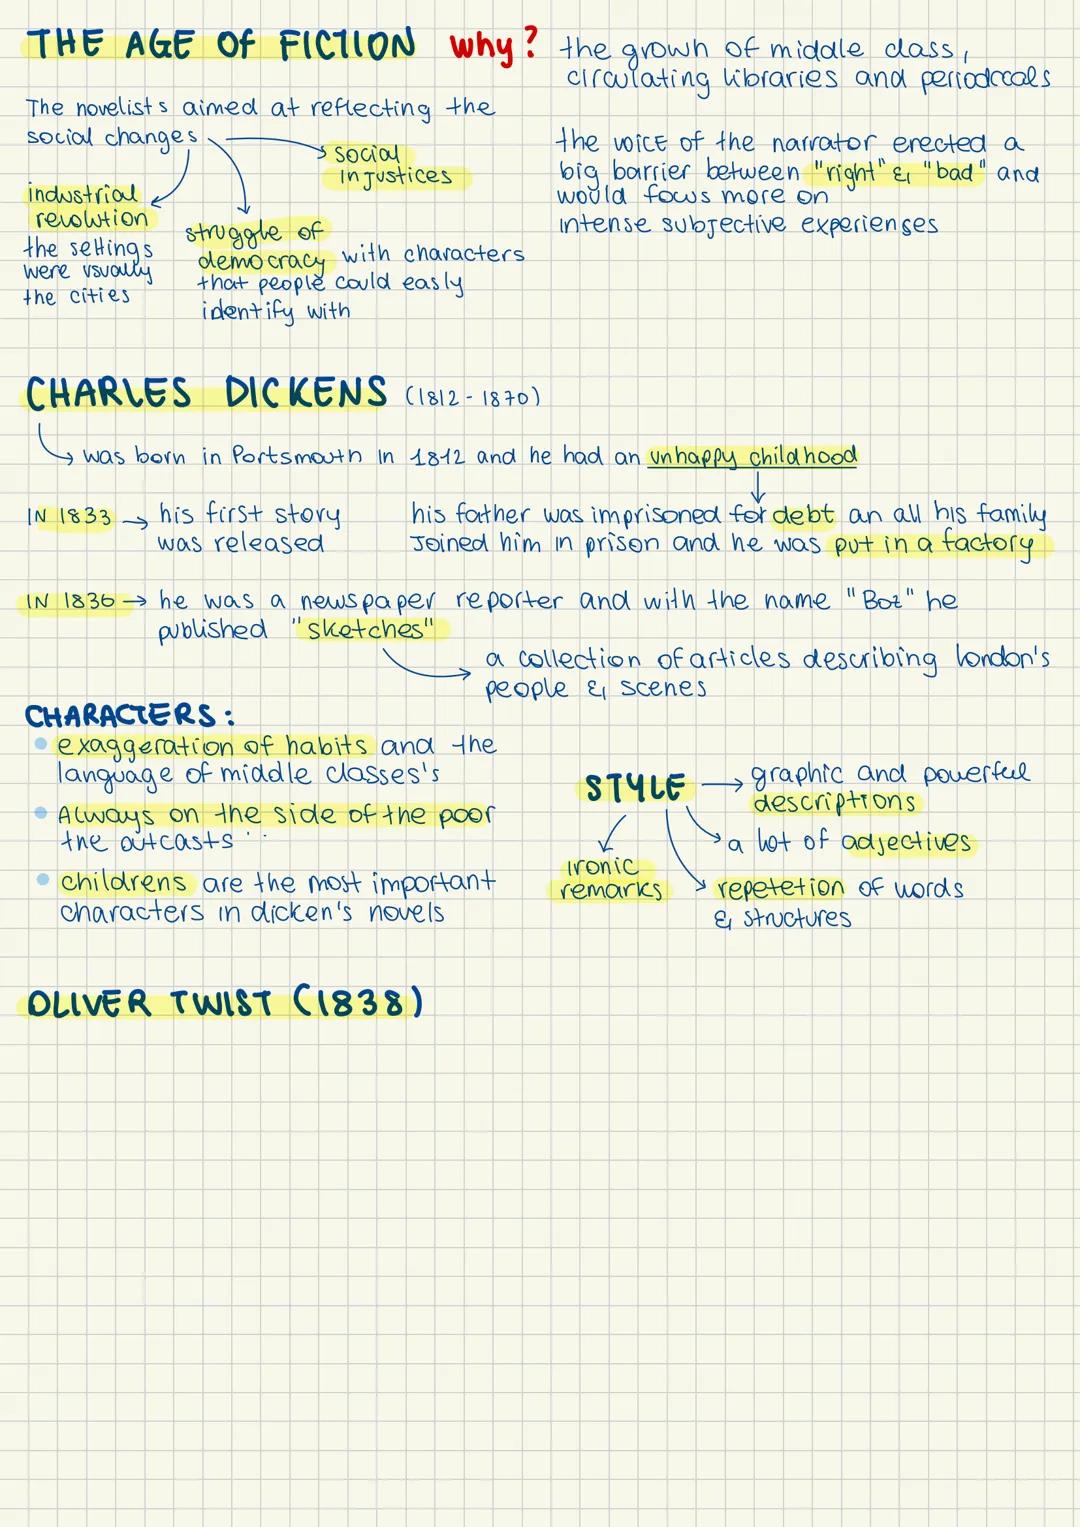 THE AGE OF FICTION why?
the grownh of middle class,
circulating libraries and periodccals
The novelists aimed at reflecting the
social changes
social
injustices
industrial
revolution
the settings
were usually
the cities
struggle of
democracy with characters
that people could easly
identify with
the voice of the narrator erected a
big barrier between "right" & "bad" and
would focus more on
intense subjective experienses
CHARLES DICKENS (1812-1870)
was born in Portsmouth in 1812 and he had an unhappy childhood
IN 1833 → his first story
was released
his father was imprisoned for debt an all his family
Joined him in prison and he was put in a factory
IN 1836 → he was a newspaper reporter and with the name "Boz" he
published "sketches"
a collection of articles describing london's
people & scenes
CHARACTERS:
• exaggeration of habits and the
language of middle classes's
• Always on the side of the poor
the outcasts
• childrens are the most important
characters in dicken's novels
STYLE → graphic and powerful
descriptions
a lot of adjectives
ironic
remarks
repetetion of words
& structures
OLIVER TWIST (1838)